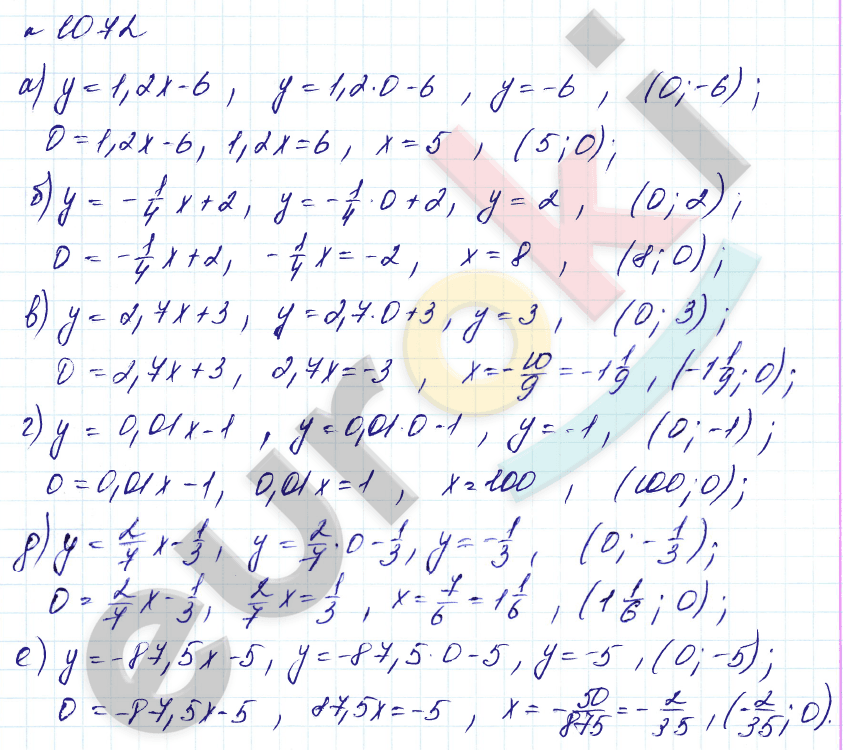 № 1072
а) y = 1,2x - 6 , y = 1,2 · 0 - 6 , y = -6 , (0; -6) ;
0 = 1,2x - 6, 1,2x = 6 , x = 5 , (5; 0);
б) y = -1/4 x + 2, y = -1/4 · 0 + 2, y = 2 , (0; 2) ;
0 = -1/4 x + 2, -1/4 x = -2 , x = 8 , (8; 0) ;
в) y = 2,7x + 3 , y = 2,7 · 0 + 3 , y = 3 , (0; 3) ;
0 = 2,7x + 3 , 2,7x = -3 , x = -10/9 = -1 1/9 , (-1 1/9; 0) ;
г) y = 0,01x - 1 , y = 0,01 · 0 - 1 , y = -1, (0; -1) ;
0 = 0,01x - 1, 0,01x = 1 , x = 100 , (100; 0) ;
д) y = 2/7 x - 1/3 , y = 2/7 · 0 - 1/3 , y = -1/3 , (0; -1/3) ;
0 = 2/7 x - 1/3 , 2/7 x = 1/3 , x = 7/6 = 1 1/6 , (1 1/6; 0) ;
е) y = -87,5x - 5, y = -87,5 · 0 - 5, y = -5 , (0; -5) ;
0 = -87,5x - 5 , 87,5x = -5 , x = -50/875 = -2/35 , (-2/35; 0).
euroki